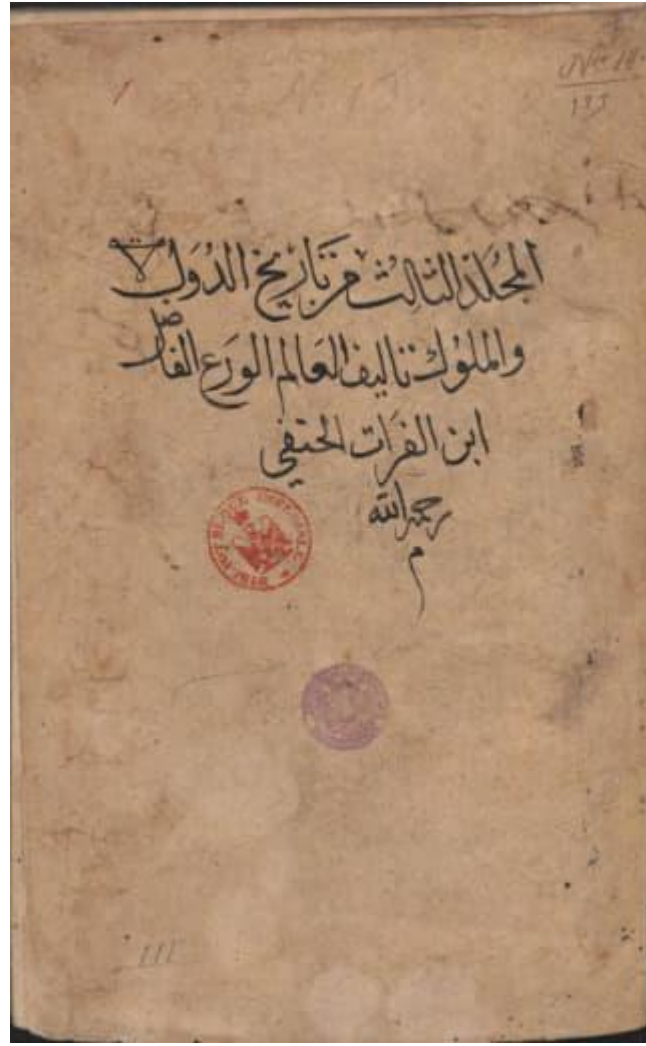 المجلد الثالث من تاريخ الدول
والملوك تاليف العالم الورع الفاضل
ابن الفرات الحنفي
رحمه الله
م